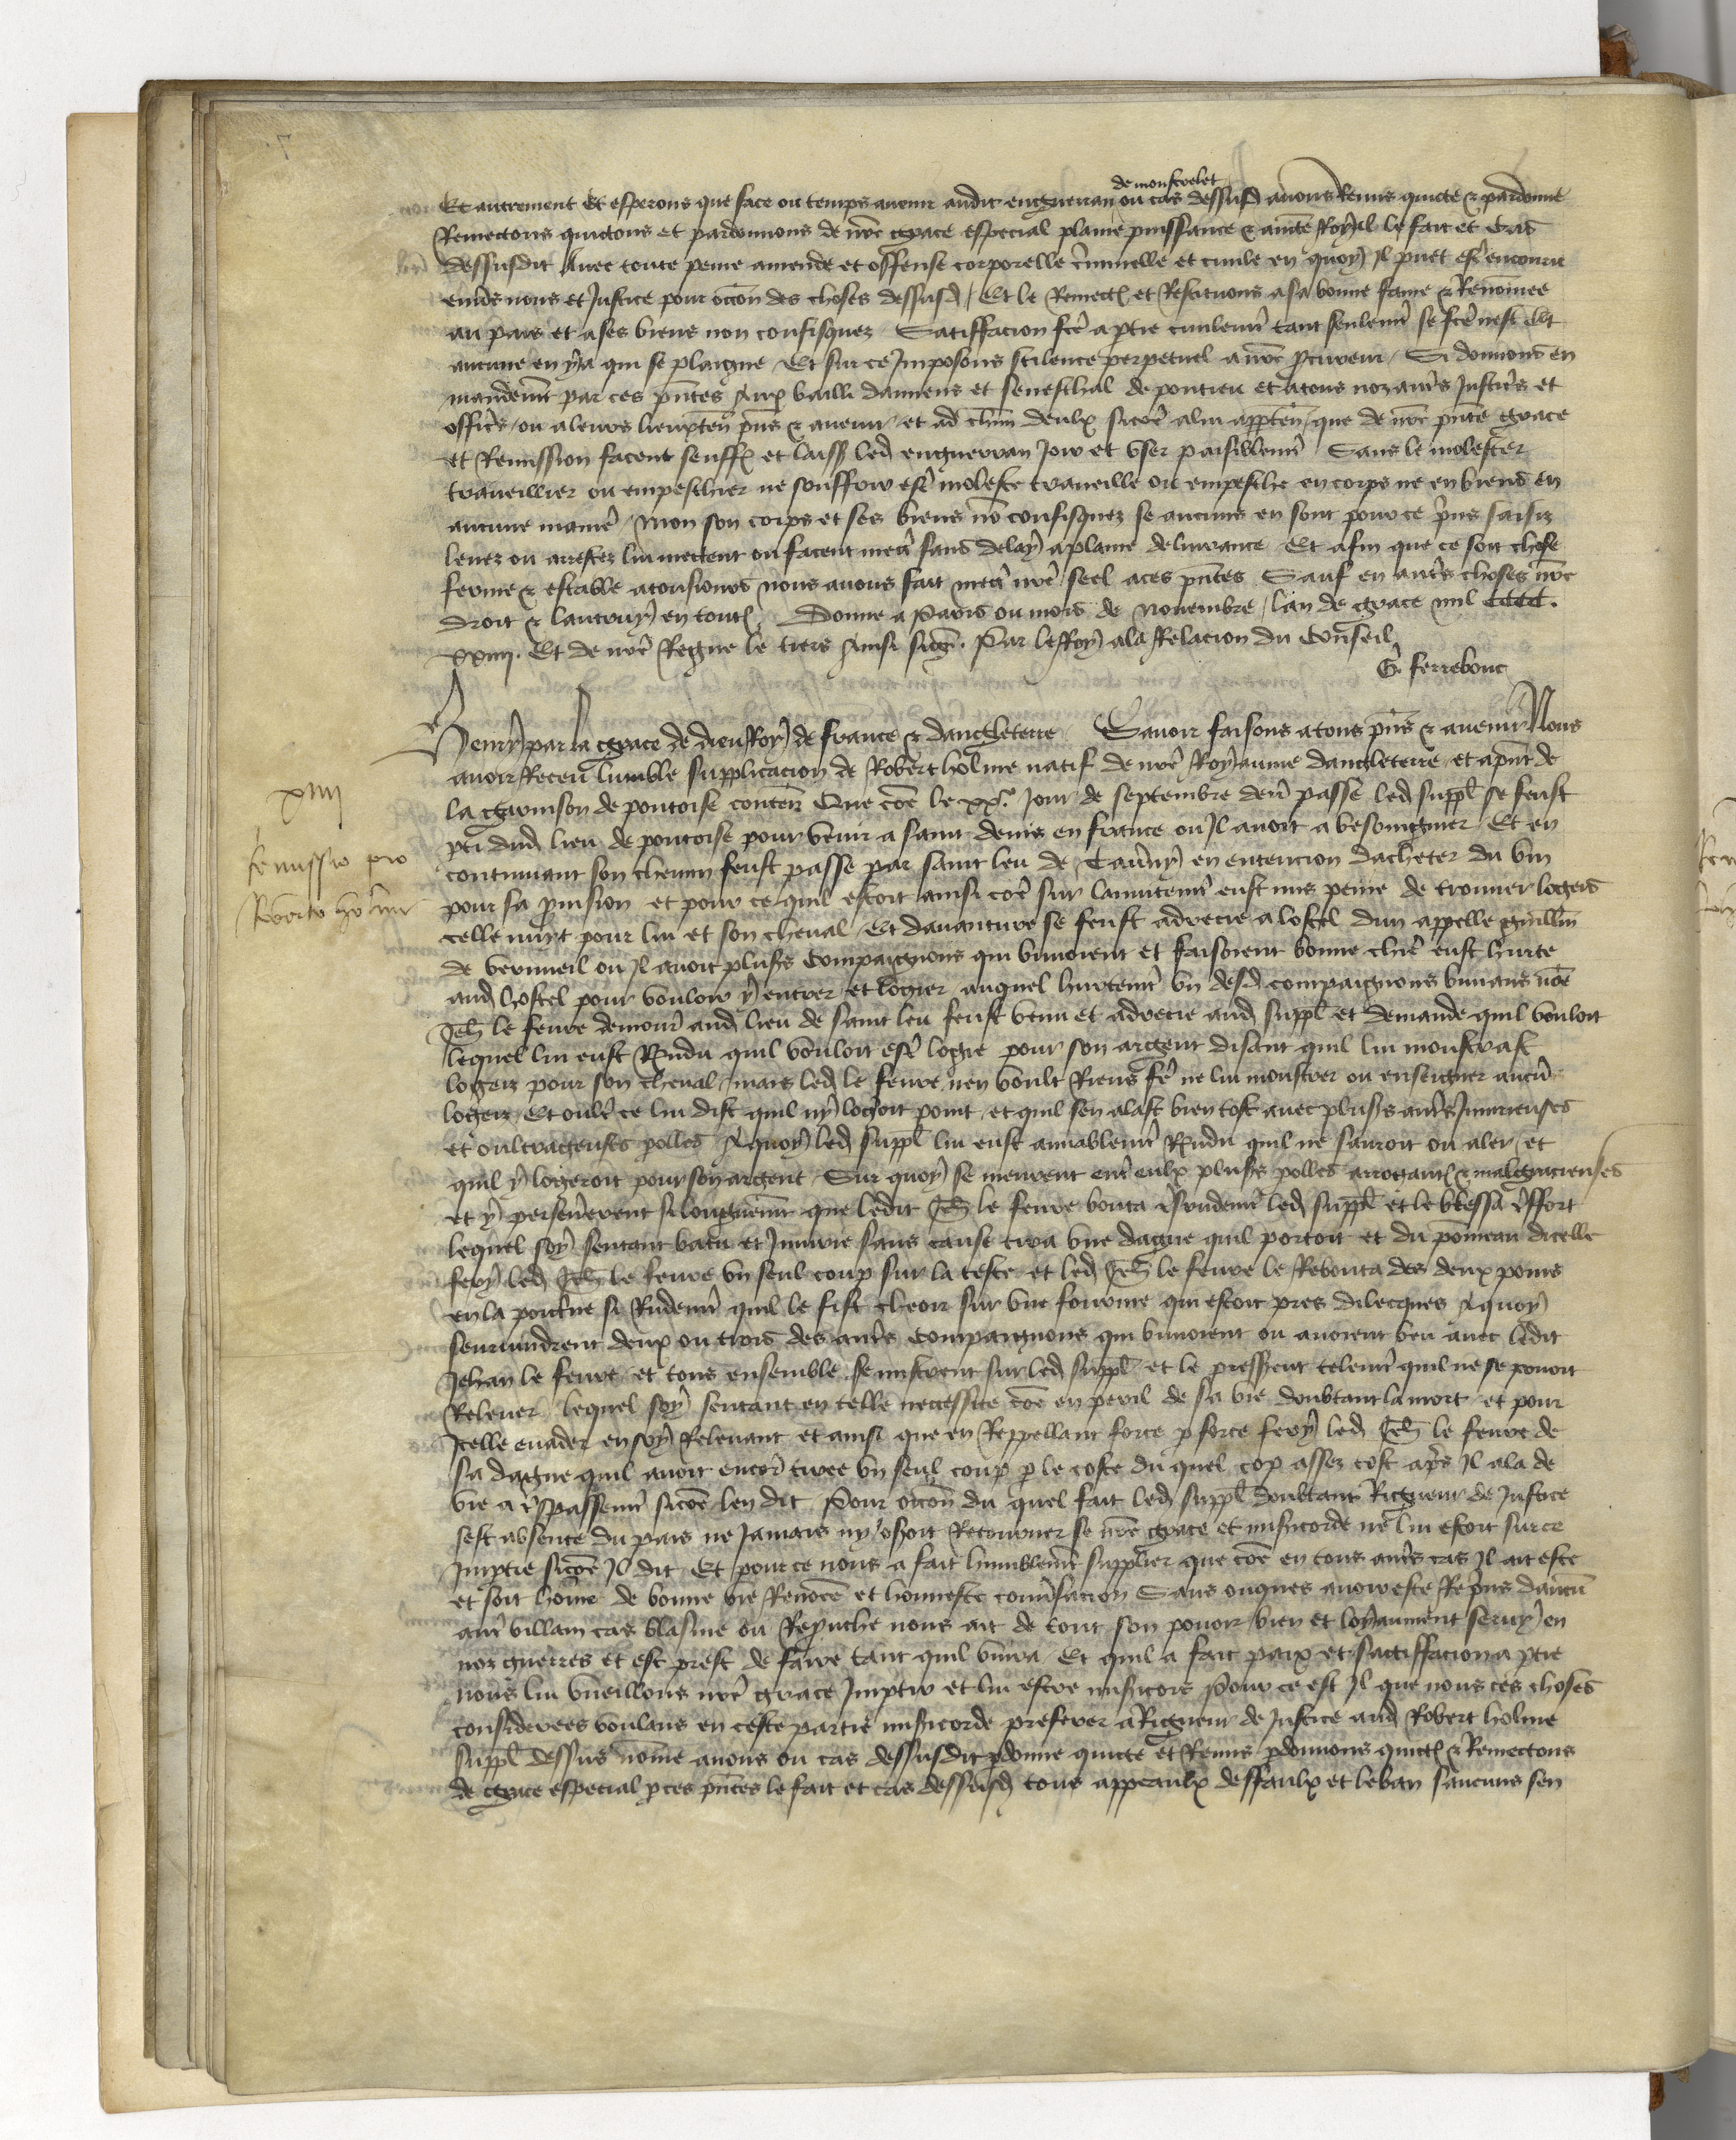 de monstrelet
Et autrement Et esperons que face ou temps avenir audit enguerran ou cas dessusd avons Remis quicte & pardonne
Remectons quictons et pardonnons de nre grace especial plaine puissance & aucte Royal le fait et cas
dessusdit Avec toute peine amende et offense corporelle criminelle et civile en quoy Il puet estre encouru
envers nous et Justice pour occon des choses dessusd / Et le Remect et Restituons a sa bonne fame & Renomee
au pais et a ses biens non confisquez Satisfacion fce a ptie civilemt tant seulemt se fce nest Et
aucune en y a qui se plaigne Et sur ce Imposons scilence perpetuel a nre pcureur / Si donnons en
mandemt par ces pntes Aux bailli damiens et seneschal de pontieu et a tous noz autres Justiciers et
officiers ou a leurs lieuxten pns & avenir et a chun deulx sicoe a lui apptend que de nre pnte grace
et Remission facent seuffr et laiss led enguerran Joir et user paisiblemt Sans le molester
traveillier ou empeschier ne souffrir estre moleste traveille ou empesche en corps ne en biens en
aucune maniere Mais son corps et ses biens no confisquez se aucuns en sont pour ce prins saisiz
levez ou arrestez lui mectent ou facent mectre sans delay a plaine delivrance Et afin que ce soit chose
ferme & estable a tousiours nous avons fait mectre nre seel a ces pntes Sauf en autres choses nre
droit & lautruy en tout Donne a Paris ou mois de Novembre lan de grace mil cccc.
xxiiii. Et de nre Regne le tiers Ainsi sign. Par le Roy a la Relacion du Conseil
G. ferrebouc
Henry par la grace de dieu Roy de france & dangleterre Savoir faisons a tous pns & avenir Nous
avoir Receu lumble supplicacion de Robert holme natif de nre Royaume dangleterre et apnt de
la garnison de pontoise conten Que coe le xxe Jour de septembre dern passe led suppl se feust
pti dud lieu de pontoise pour venir a saint denis en france ou Il avoit a besoingnier Et en
continuant son chemin feust passe par saint leu de Taverny en entencion dacheter du vin
pour sa pvision et pour ce quil estoit ainsi coe sur lanuitemt eust mis peine de trouver logeis
celle nuyt pour lui et son cheval Et davanture se feust adrecie a lostel dun appelle guillm
de verneuil ou Il avoit plusrs Compaignons qui buvoient et faisoient bonne chiere eust hurte
aud hostel pour vouloir y entrer et logier auquel hurtemt un desd compaignons buvans nome
Jeh le fevre demour aud lieu de saint leu feust venu et adrecie aud suppl et demande quil vouloit
lequel lui eust Rndu quil vouloit estre logie pour son argent disant quil lui monstrast
logeiz pour son cheval mais led le fevre nen voult Riens fe ne lui monstrer ou enseigner aucun
logeiz Et oultre ce lui dist quil ny logoit point et quil sen alast bien tost avec plusrs autres Iniurieuses
et oultrageuses polles A quoy led suppl lui eust amiablemt Rndu quil ne sauroit ou aler et
quil y logeroit pour son argent Sur quoy se meurent entre eulx plusrs polles arrogant & malgracieuses
et y perseverent si longuemt que ledit Jeh le fevre bouta Rudemt led suppl et le blessa tsfort
lequel soy sentant batu et Iniurie sans cause tira une dague quil portoit et du pomeau dicelle
fery led Jeh le fevre un seul coup sur la teste et led Jeh le fevre le Rebouta des deux poins
en la poictrine si Rudemt quil le fist cheoir sur une fourme qui estoit pres dilecques A quoy
seurvindrent deux ou trois des autres compaignons qui buvoient ou avoient beu avec ledit
Jehan le fevre et tous ensemble se mistrent sur led suppl et le presserent telemt quil ne se povoit
Relever lequel soy sentant en telle necessite coe en peril de sa vie doubtant la mort et pour
Icelle evader en soy Relevant et ainsi que en Reppellant force p force fery led Jeh le fevre de
sa dague quil avoit encore tiree un seul coup p le coste du quel cop assez tost aprs Il ala de
vie a trespassemt sicoe len dit Pour occon du quel fait led suppl doubtant Rigueur de Justice
sest absente du pais ne Jamais ny oseroit Retourner se nre grace et misicorde ne lui estoit sur ce
Imptie sicoe Il dit Et pour ce nous a fait humblemt supplier que coe en tous autres cas Il ait este
et soit home de bonne vie Renomee et honneste conversacion Sans onques avoir este Reprins daucun
autre villain cas blasme ou Reprouche nous ait de tout son povoir bien et loyaument servy en
noz guerres et est prest de faire tant quil vivra Et quil a fait paix et satisffacion a ptie
nous lui vueillons nre grace Imptir et lui estre misicors Pour ce est Il que nous ces choses
considerees voulans en ceste partie misicorde preferer a Rigueur de Justice aud Robert holme
suppl dessus nome avons ou cas dessusdit pdonne quicte et Remis pdonnons quict & Remectons
de grace especial p ces pntes le fait et cas dessusd tous appeaulx deffaulx et le ban saucuns sen
xiiii
Remissio pro
Roberto holme